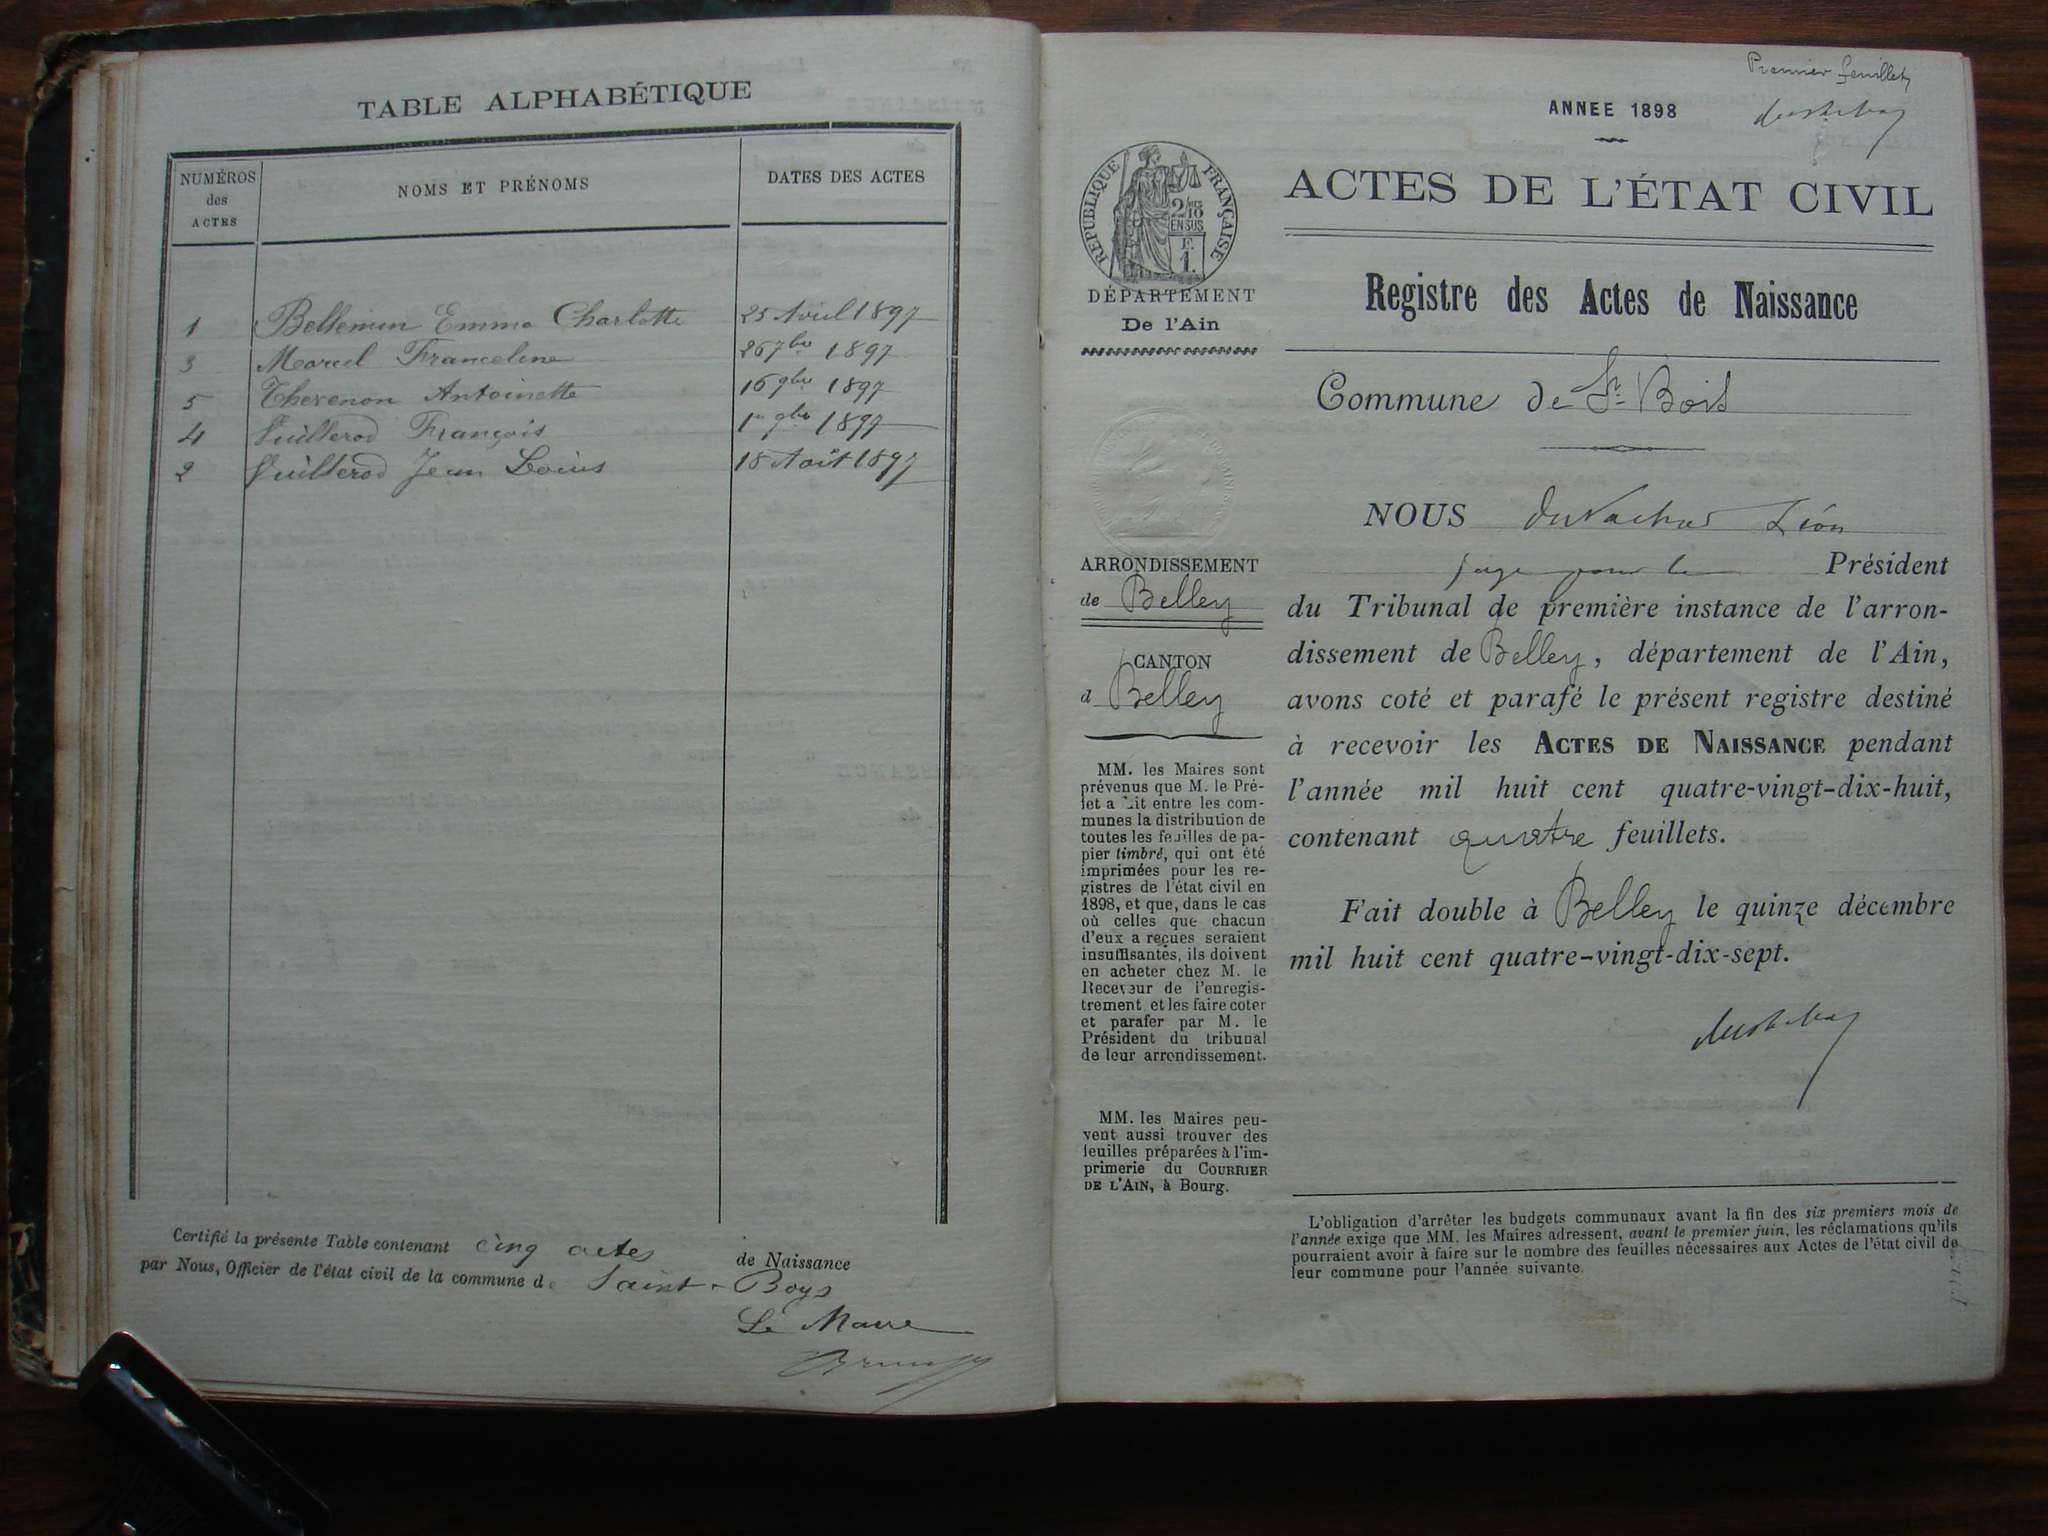 TABLE ALPHABÉTIQUE
NUMÉROS
des
ACTES
NOMS ET PRÉNOMS
DATES DES ACTES
1 Bellemin Emma Charlotte 25 Avril 1897
3 Marcel Franceline 26 7bre 1897
5 Thevenon Antoinette 16 9bre 1897
4 Vuillerod François 1er 9bre 1897
2 Vuillerod Jean Louis 18 Août 1897
Certifié la présente Table contenant cinq actes de Naissance
par Nous, Officier de l'état civil de la commune de Saint-Boys
Le Maire
Premier feuillet
ANNEE 1898
ACTES DE L'ÉTAT CIVIL
RÉPUBLIQUE FRANÇAISE
2/10
EN SUS
F.
1.
DÉPARTEMENT
De l'Ain
Registre des Actes de Naissance
Commune de St Bois
ARRONDISSEMENT
de Belley
CANTON
d Belley
MM. les Maires sont
prévenus que M. le Pré-
fet a fait entre les com-
munes la distribution de
toutes les feuilles de pa-
pier timbré, qui ont été
imprimées pour les re-
gistres de l'état civil en
1898, et que, dans le cas
où celles que chacun
d'eux a reçues seraient
insuffisantes, ils doivent
en acheter chez M. le
Receveur de l'enregis-
trement et les faire coter
et parafer par M. le
Président du tribunal
de leur arrondissement.
MM. les Maires peu-
vent aussi trouver des
feuilles préparées à l'im-
primerie du COURRIER
DE L'AIN, à Bourg.
NOUS Léon
juge pour le Président
du Tribunal de première instance de l'arron-
dissement de Belley, département de l'Ain,
avons coté et parafé le présent registre destiné
à recevoir les ACTES DE NAISSANCE pendant
l'année mil huit cent quatre-vingt-dix-huit,
contenant quatre feuillets.
Fait double à Belley le quinze décembre
mil huit cent quatre-vingt-dix-sept.
L'obligation d'arrêter les budgets communaux avant la fin des six premiers mois de
l'année exige que MM. les Maires adressent, avant le premier juin, les réclamations qu'ils
pourraient avoir à faire sur le nombre des feuilles nécessaires aux Actes de l'état civil de
leur commune pour l'année suivante.